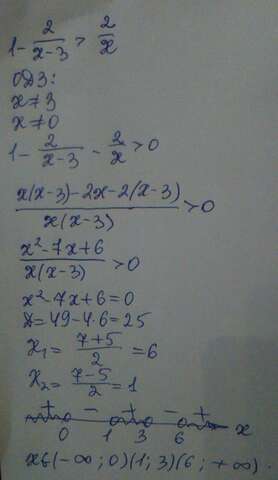 1 - 2/(x-3) > 2/x
ОДЗ:
x≠3
x≠0
1 - 2/(x-3) - 2/x > 0
(x(x-3)-2x-2(x-3))/(x(x-3)) > 0
(x²-7x+6)/(x(x-3)) > 0
x²-7x+6=0
D=49-4·6=25
x₁= (7+5)/2 =6
x₂= (7-5)/2 =1
+ - + - +
0 1 3 6 x
x∈(-∞;0)(1;3)(6;+∞).